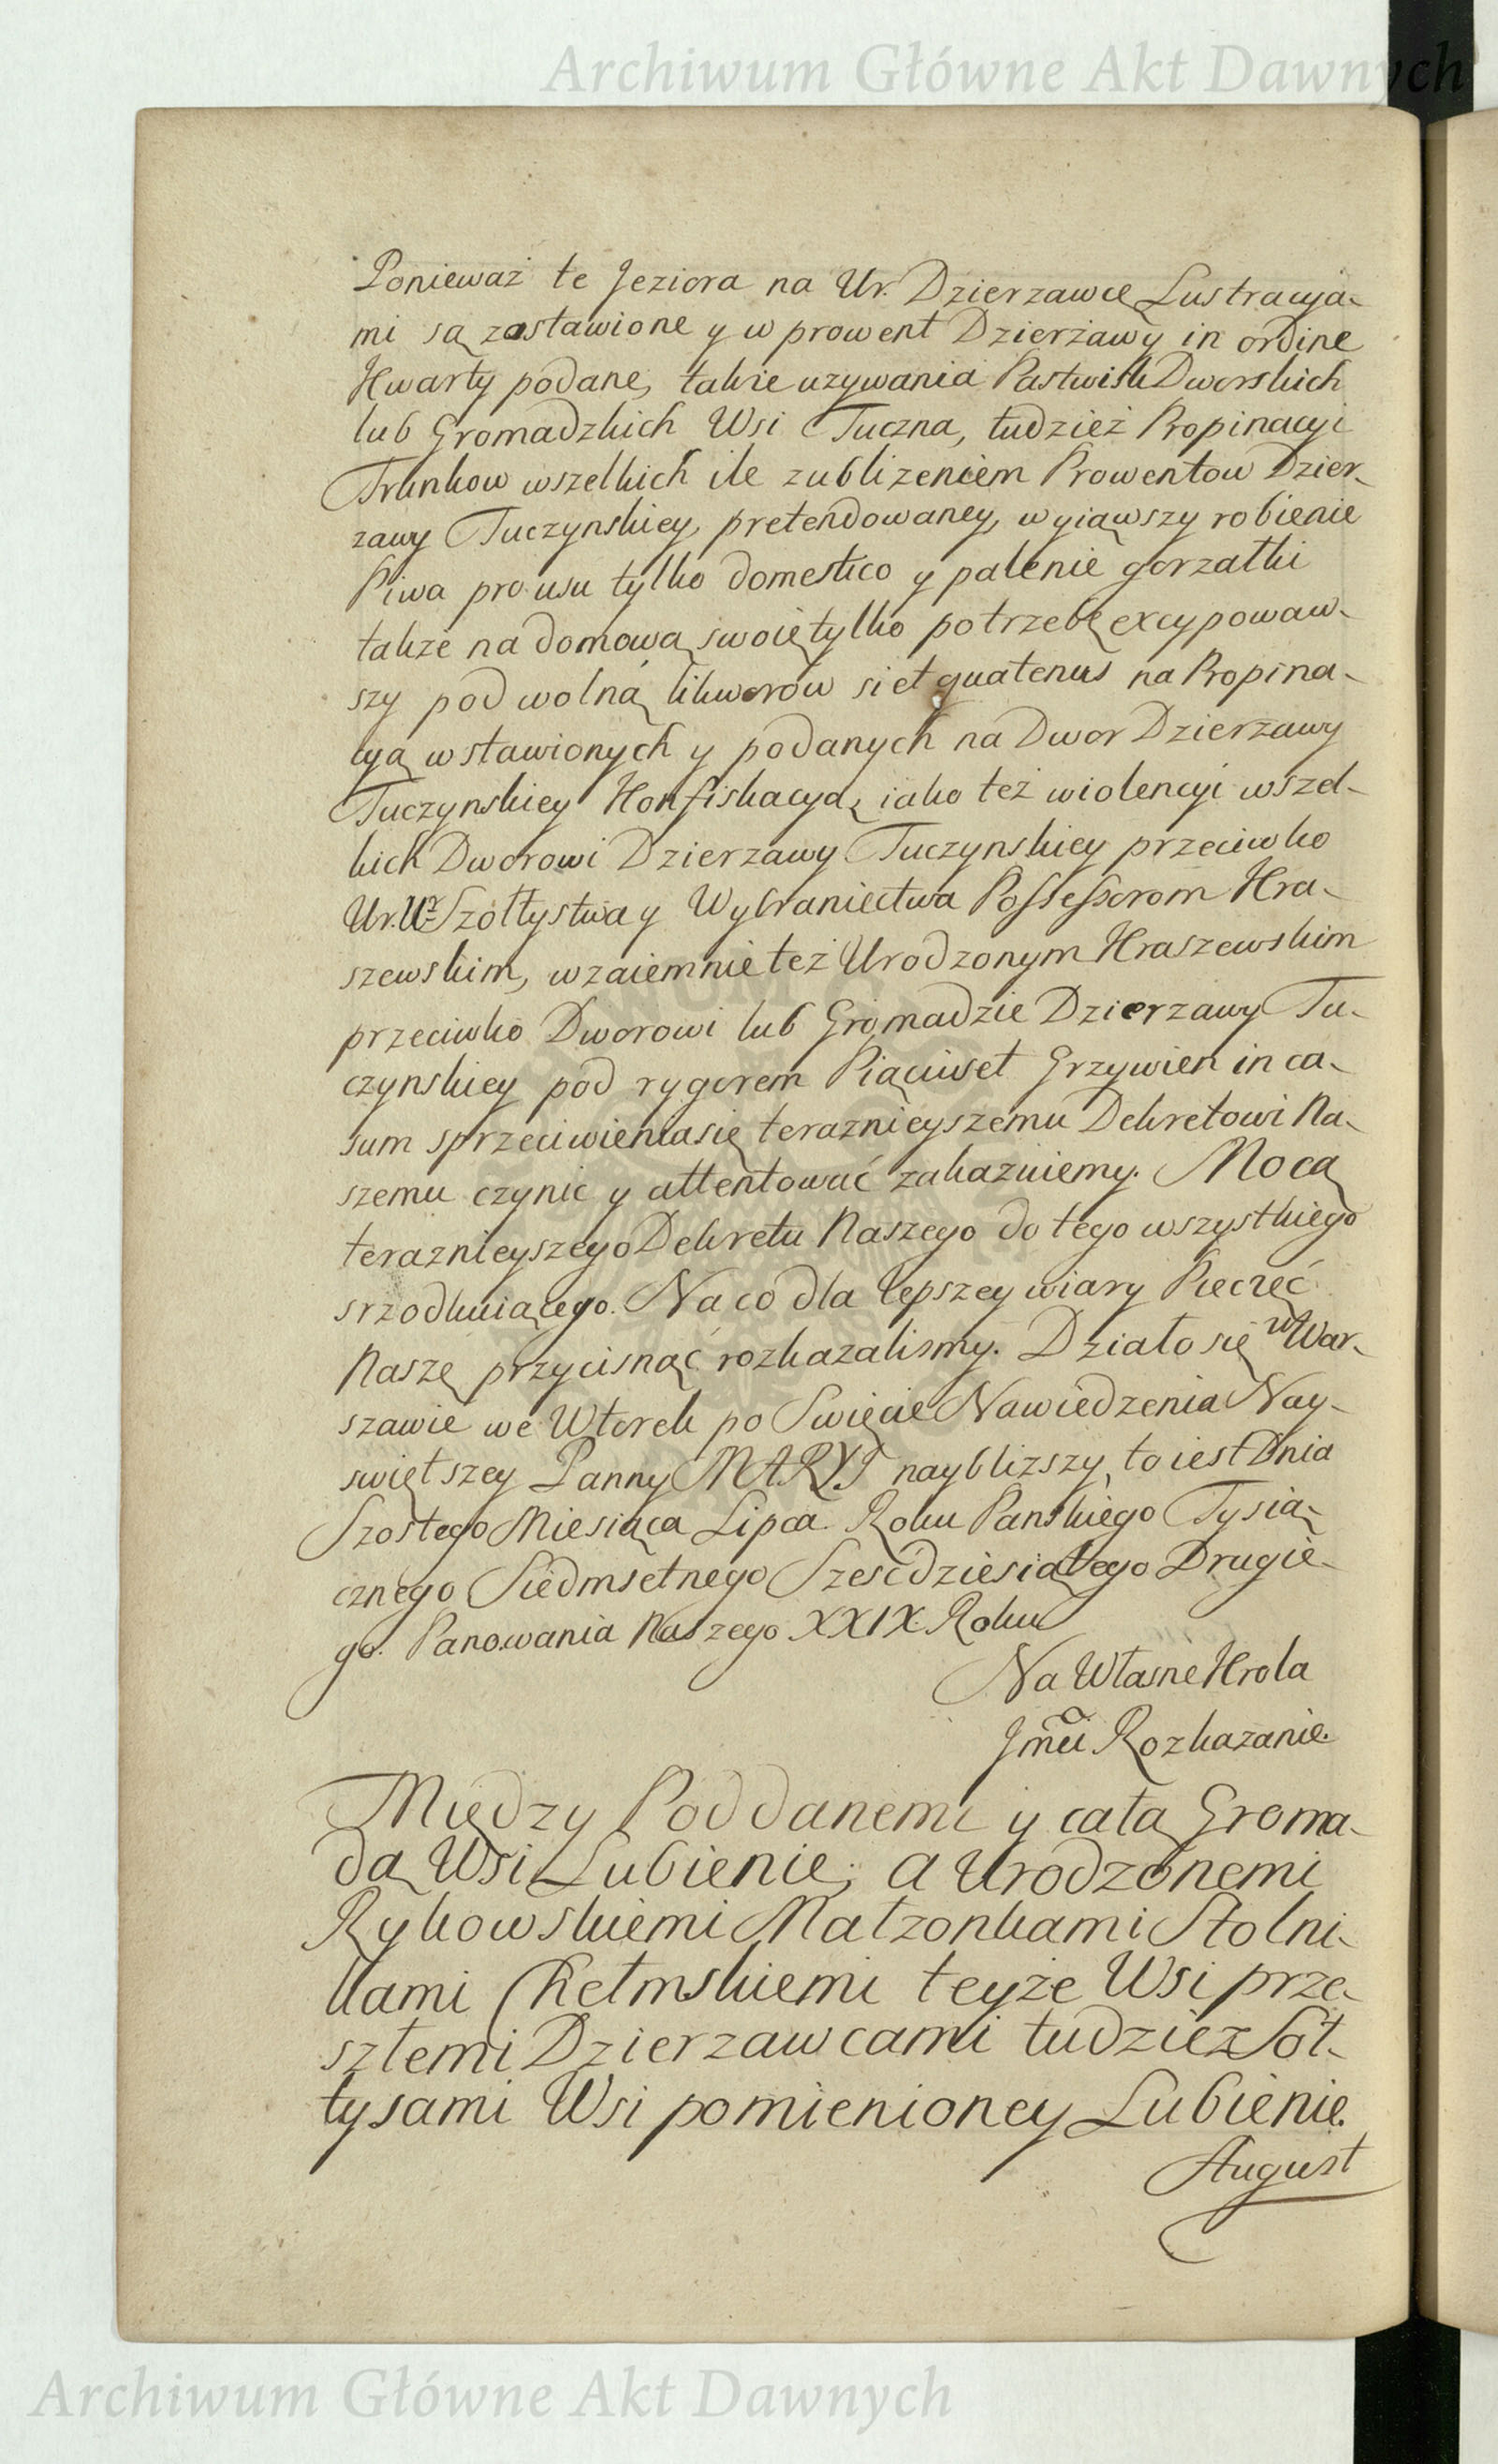 Archiwum Główne Akt Dawnych
Ponieważ te Jeziora na Ur. Dzierzawcę Lustracyia-
mi są zostawione y w prowent Dzierżawy in ordine
Kwarty podane, takie uzywania Pastwisk Dworskich
lub Gromadzkich Wsi Tuczna, tudzież Propinacyi
Trunkow wszelkich ile zublizeniem Prowentow Dzier-
zawy Tuczynskiey, pretendowaney, wyiąwszy robienie
Piwa pro usu tylko domestico y palenie gorzałki
takze na domową swoię tylko potrzebę excypowaw-
szy pod wolną likworów si et quatenus na Propina-
cyą wstawionych y podanych na Dwor Dzierzawy
Tuczynskiey Konfiskacyą, iako też wiolencyi wszel-
kich Dworowi Dzierzawy Tuczynskiey przeciwko
Ur. Ur. Szołtystwa y Wybraniectwa Possessorom Kra-
szewskim, wzaiemnie też Urodzonym Kraszewskim
przeciwko Dworowi lub Gromadzie Dzierzawy Tu-
czynskiey pod rygorem Piąciuset Grzywien in ca-
sum sprzeciwienia się teraznieyszemu Dekretowi Na-
szemu czynic y attentować zakazuiemy. Mocą
teraznieyszego Dekretu Naszego do tego wszystkiego
srzodkuiącego. Na co dla lepszey wiary Pieczęć
Naszę przycisnąć rozkazalismy. Działo się w War-
szawie we Wtorek po Swięcie Nawiedzenia Nay-
swiętszey Panny MARYI naybliższy, to iest Dnia
Szostego Miesiąca Lipca Roku Panskiego Tysią-
cznego Siedmsetnego Sześćdziesiątego Drugie-
go. Panowania Naszego XXIX. Roku
Na Własne Krola
Jmci Rozkazanie.
Między Poddanemi y całą Groma-
dą Wsi Lubienie, a Urodzonemi
Rykowskiemi Małzonkami Stolni-
kami Chełmskiemi teyże Wsi prze-
szłemi Dzierzawcami tudzież Soł-
tysami Wsi pomienioney Lubienie.
August
Archiwum Główne Akt Dawnych